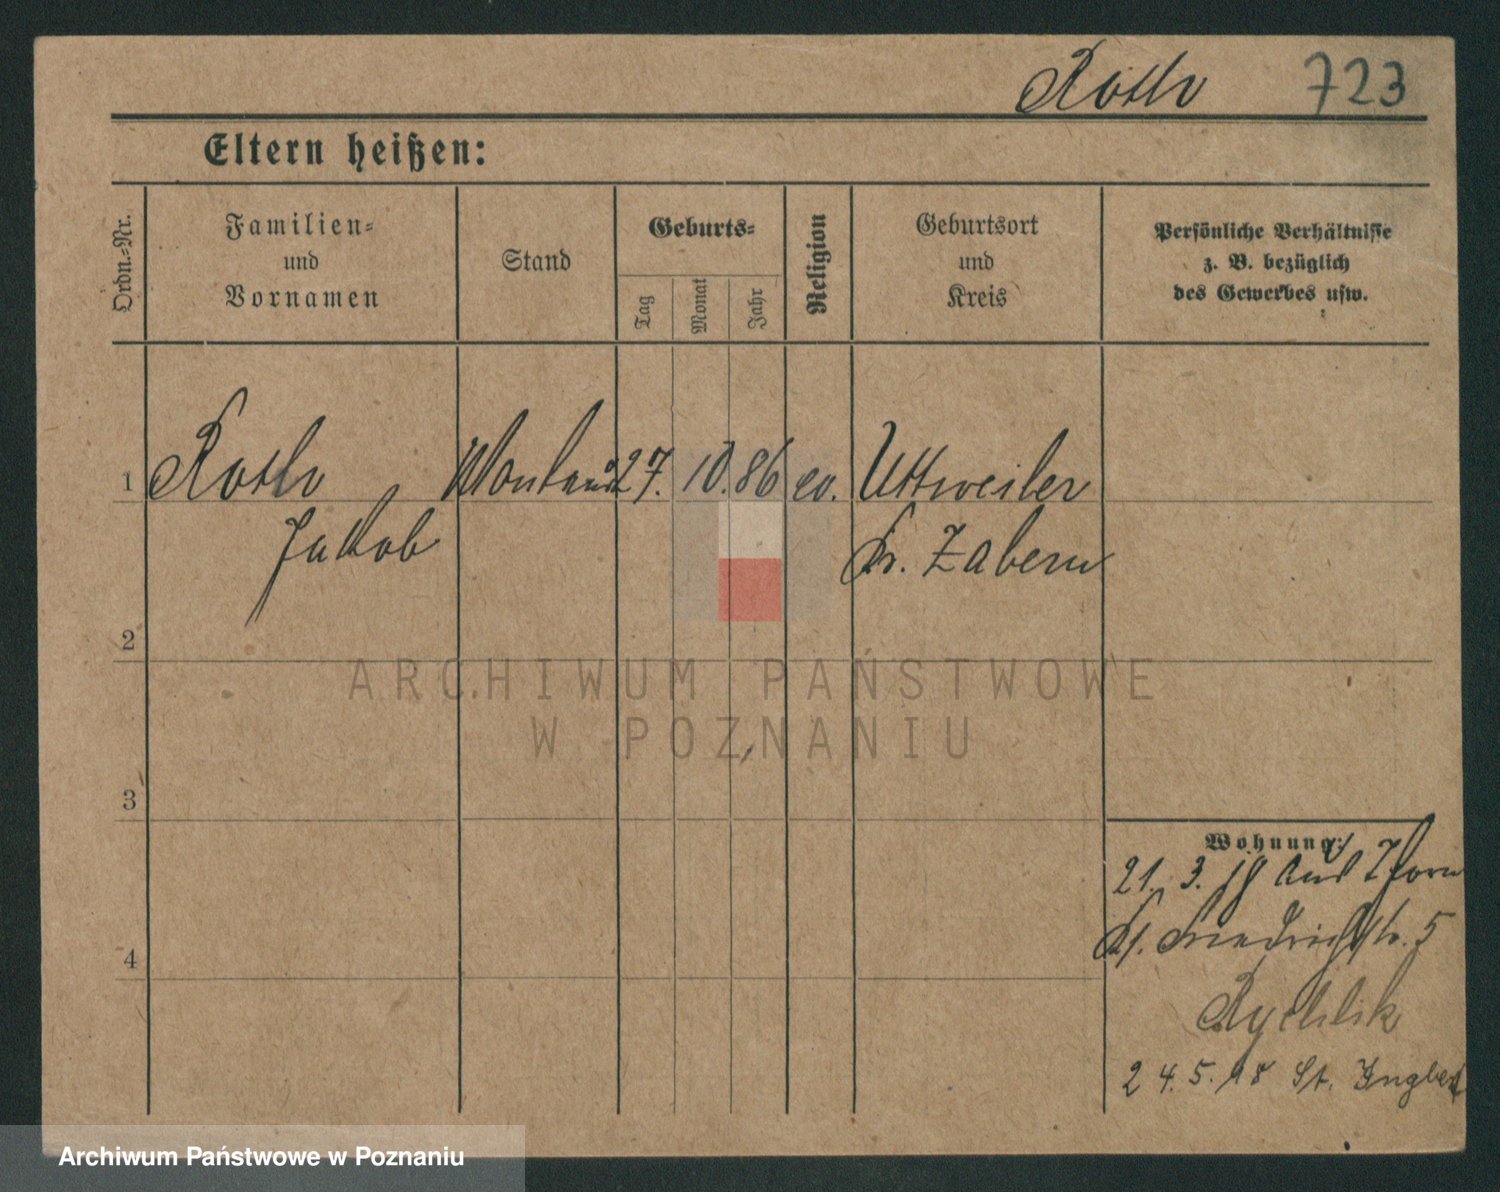 Roth 723
Eltern heißen:
Ordn.-Nr.
Familien-
und
Vornamen
Stand
Geburts-
Tag
Monat
Jahr
Religion
Geburtsort
und
Kreis
Persönliche Verhältnisse
z. B. bezüglich
des Gewerbes usw.
1 Roth 27. 10. 86 ev. Uttweiler
Jakob Kr. Zabern
2
ARCHIWUM PAŃSTWOWE
W POZNANIU
3
Wohnung:
21. 3. 18 aus Thorn
Friedrichstr. 5
4
Rychlik
24. 5. 18 St. Ingbert
Archiwum Państwowe w Poznaniu